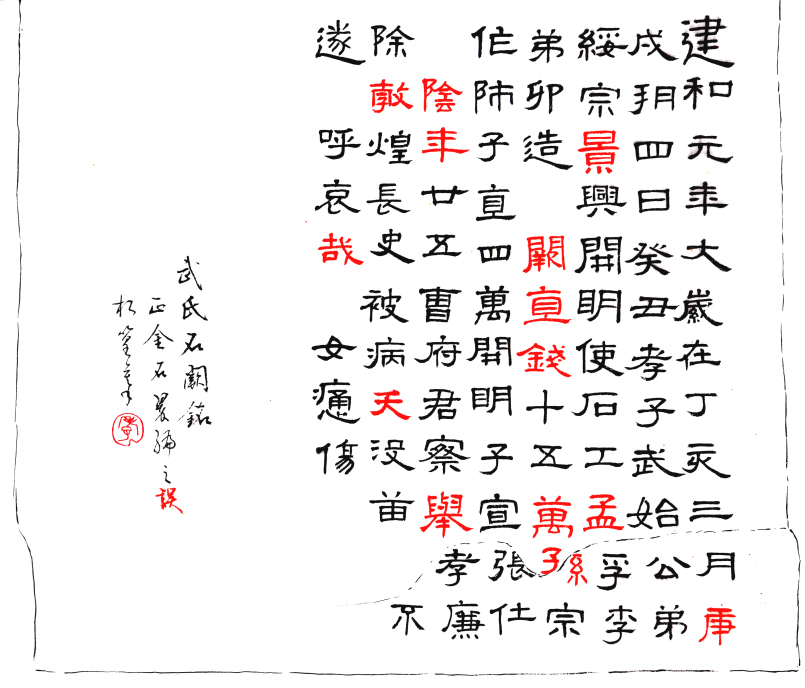 建和元年大歲在丁亥三月庚
戌朔四日癸丑孝子武始公弟
綏宗景興開明使石工孟孚李
弟卯造 闕直錢十五萬孫宗
作師子直四萬開明子宣張仕
陰年廿五曹府君察舉孝廉
除敦煌長史被病夭没苗 不
遂 呼哀哉 女痛傷
武氏石闕銘
正金石萃編之誤